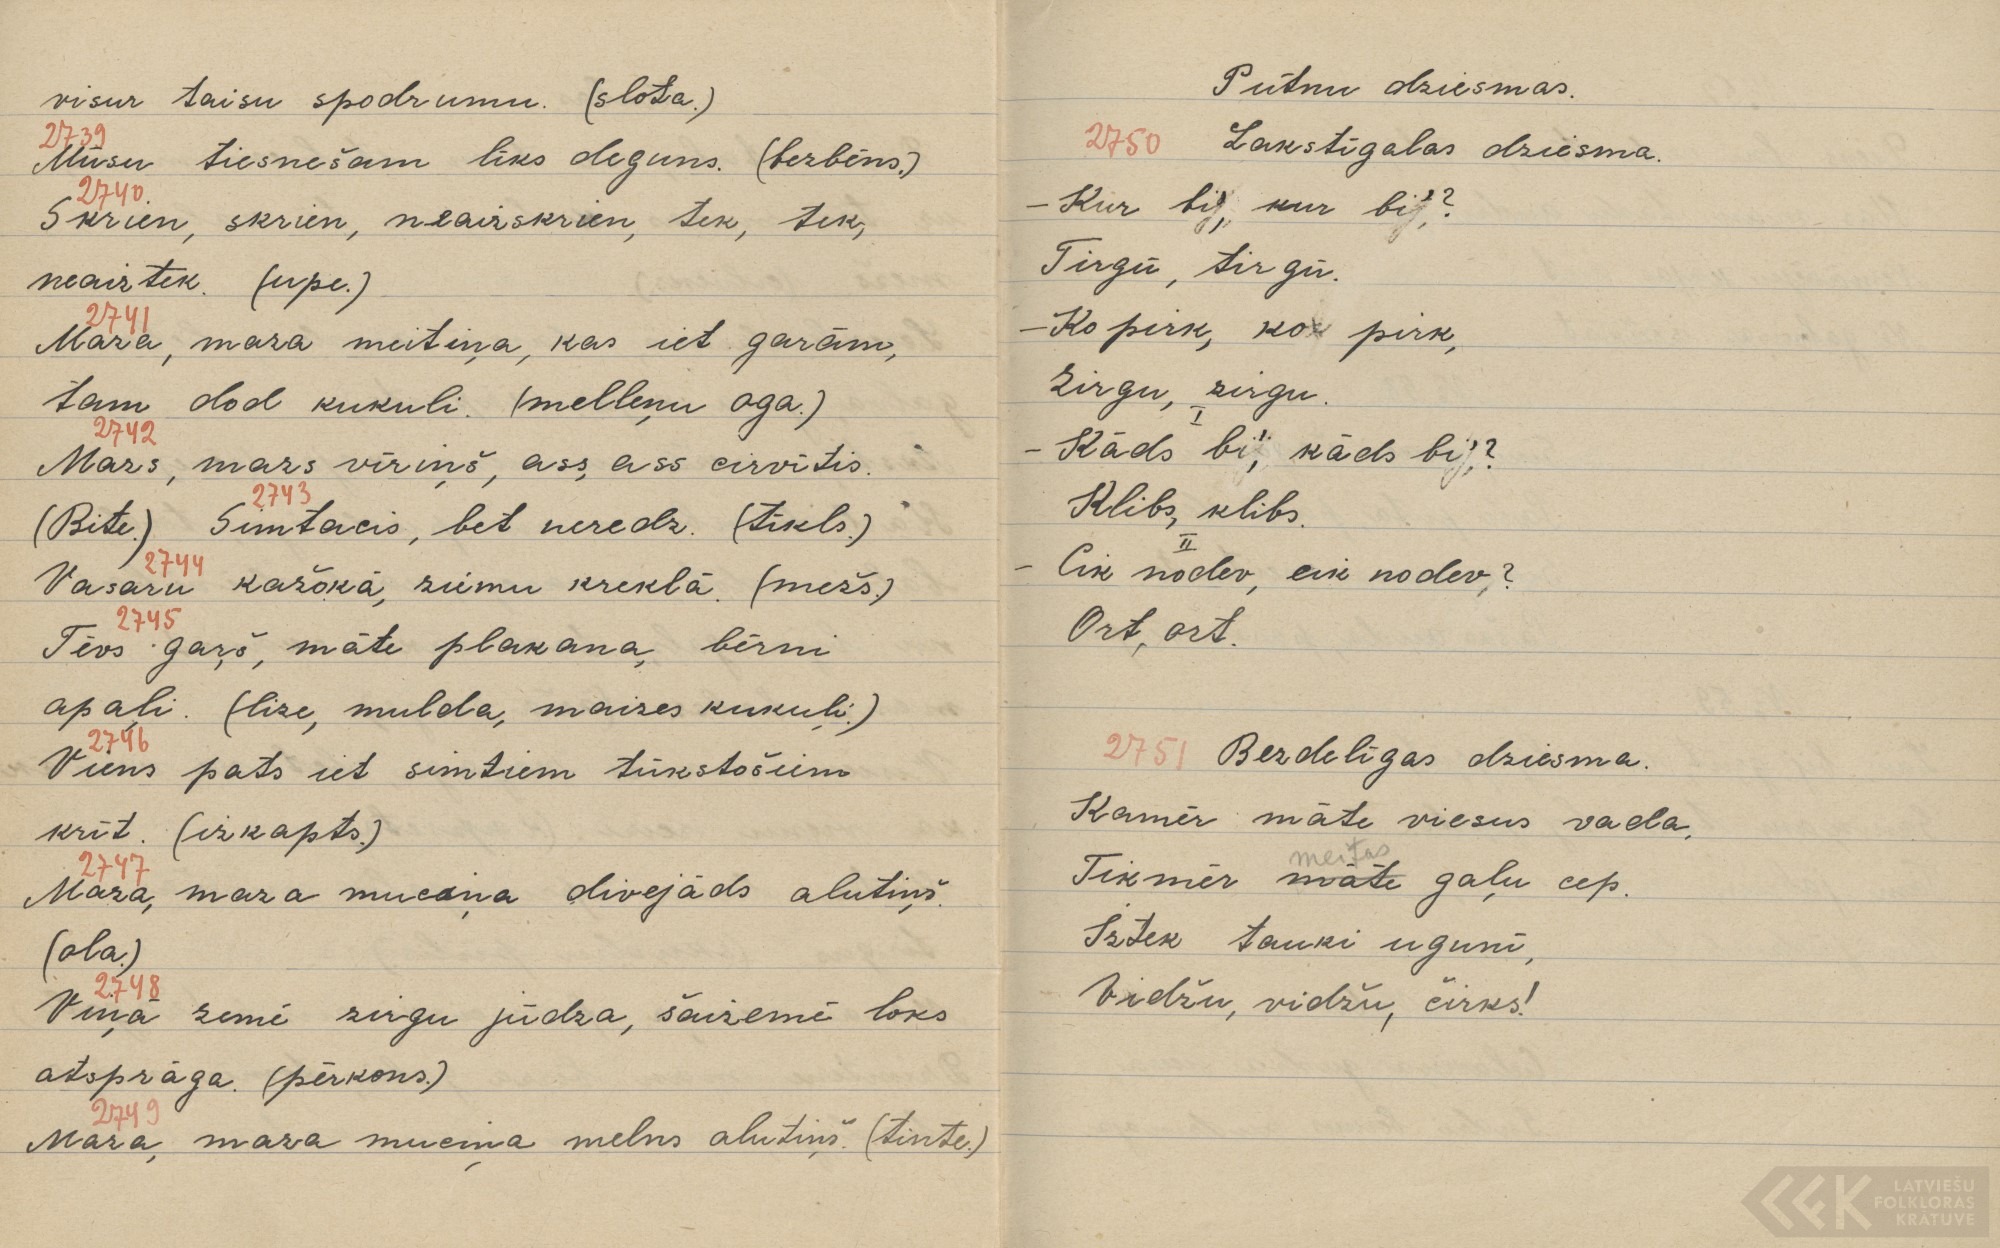 visur taisu spodrumu. (slota.)
2739
Mūsu tiesnešam līks deguns. (berbēns.)
2740
Skrien, skrien, neaizskrien, tek, tek,
neaiztek. (upe.)
2741
Maza, maza meitiņa, kas iet garām,
tam dod kukuli. (melleņu oga.)
2742
Mazs, mazs vīriņš, ass, ass cirvītis.
2743
(Bite.) Simtacis, bet neredz. (tīkls.)
2744
Vasaru kažokā, ziemu kreklā. (mežs.)
2745
Tēvs gaŗš, māte plakana, bērni
apaļi. (lize, mulda, maizes kukuļi.)
2746
Viens pats iet simtiem tūkstošiem
krīt. (izkapts.)
2747
Maza, maza muciņa divejāds alutiņš.
(ola.)
2748
Viņā zemē zirgu jūdza, šaizemē loks
atsprāga. (pērkons.)
2749
Maza, maza muciņa melns alutiņš. (tinte.)
Putnu dziesmas.
2750 Lakstīgalas dziesma.
- Kur bij', kur bij'?
Tirgū, tirgū.
- Ko pirk, ko pirk,
Zirgu, zirgu.
I
- Kāds bij', kāds bij'?
Klibs, klibs.
II
- Cik nodev, cik nodev,?
Ort, ort.
2751 Bezdelīgas dziesma.
Kamēr māte viesus vada,
meitas
Tikmēr māte gaļu cep.
Iztek tauki ugunī,
Vidžu, vidžu, čirks!
LATVIEŠU
FOLKLORAS
KRĀTUVE